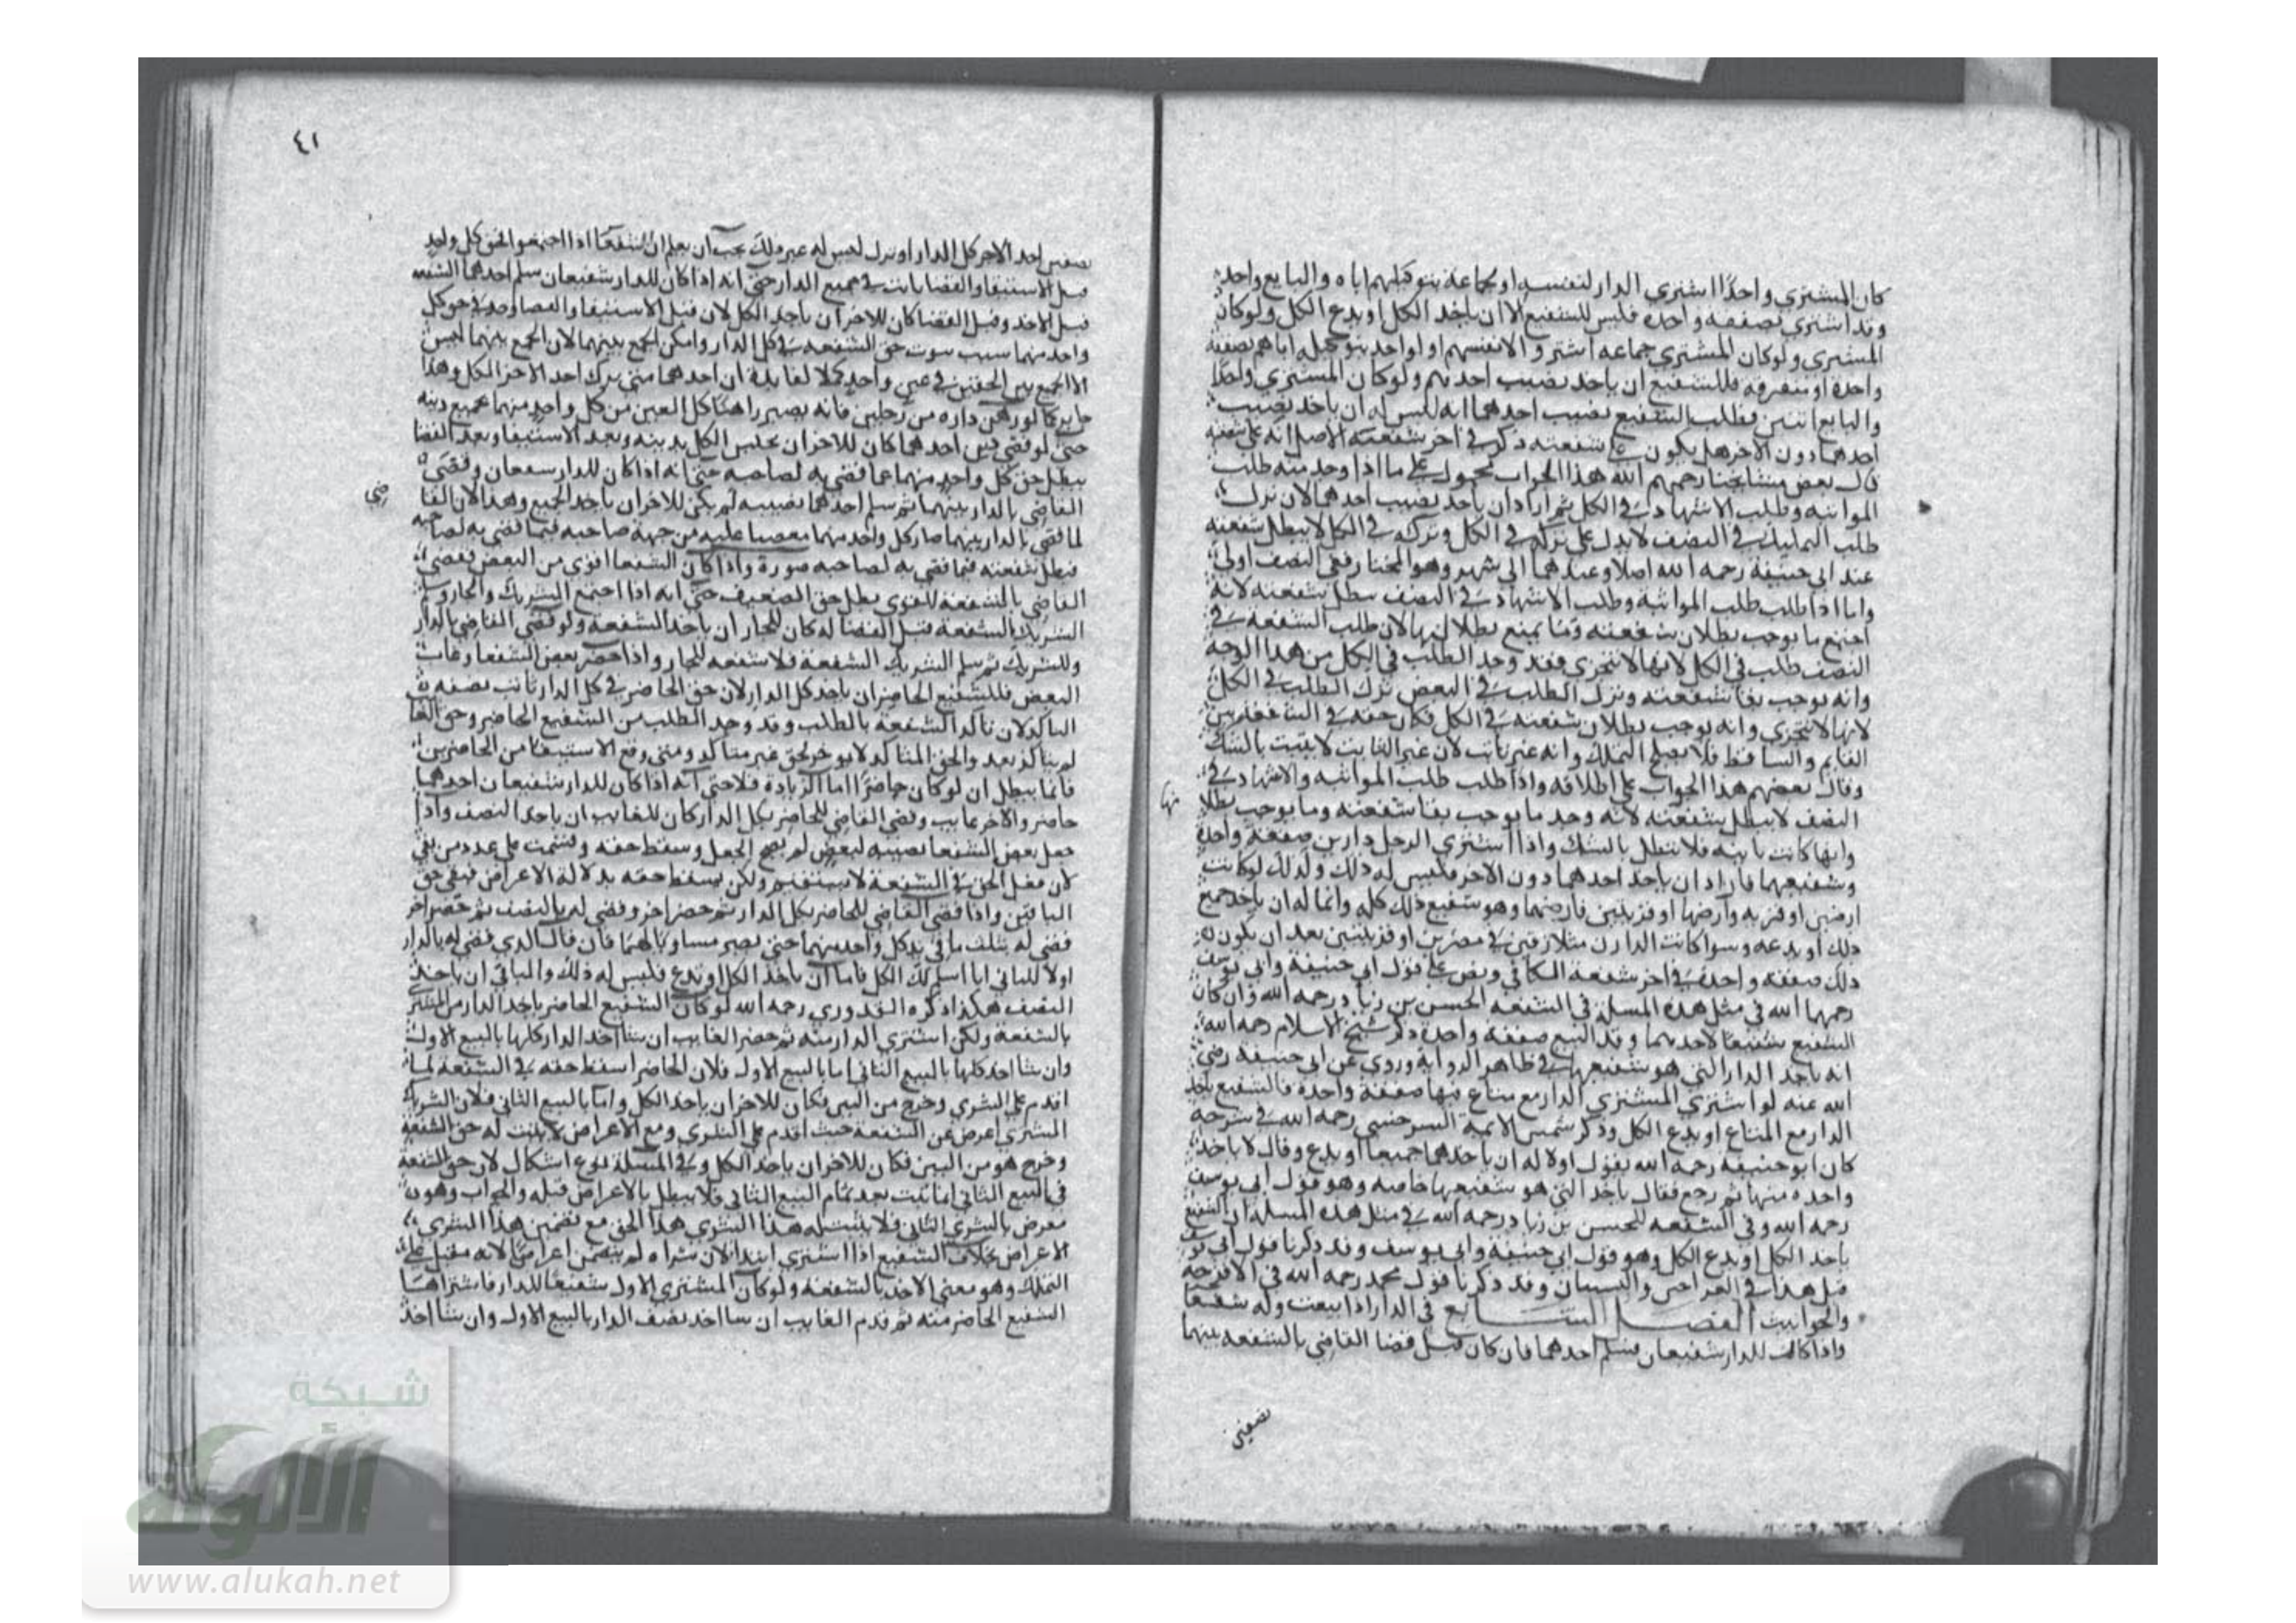 كان المشتري واحدا اشترى الدار لنفسه او لجماعة بتوكيلهم اياه والبايع واحد
وقد اشترى بصفقة واحدة فليس للشفيع الا ان ياخذ الكل او يدع الكل ولو كان
المشتري ولو كان المشتري جماعة اشتروا لانفسهم او لواحد بتوكيله اياهم بصفقة
واحدة او متفرقة فللشفيع ان ياخذ نصيب احدهم ولو كان المشتري واحدا
والبايع اثنين فطلب الشفيع نصيب احدهما انه ليس له ان ياخذ نصيب
احدهما دون الاخر هل يكون على شفعته ذكر في اخر شفعته الاصل انه على شفعته
قال بعض مشايخنا رحمهم الله هذا الجواب محمول على ما اذا وجد منه طلب
المواثبة وطلب الاشهاد في الكل ثم اراد ان ياخذ نصيب احدهما لان ترك
طلب التمليك في النصف لا يدل على تركه في الكل وتركه في الكل لا يبطل شفعته
عند ابي حنيفة رحمه الله اصلا وعندهما الى شهر وهو المختار ففي النصف اولى
واما اذا طلب طلب المواثبة وطلب الاشهاد في النصف بطل شفعته لانه
اجتمع ما يوجب بطلان شفعته وما يمنع بطلانها لان طلب الشفعة في
النصف طلب في الكل لانها لا تتجزى فقد وجد الطلب في الكل من هذا الوجه
وانه يوجب بقا شفعته وترك الطلب في البعض ترك الطلب في الكل
لانها لا تتجزى وانه يوجب بطلان شفعته في الكل فكان حقه في الشفعة بين
القايم والساقط فلا يصلح التملك وانه غير ثابت لان غير الثابت لا يثبت بالشك
وقال بعضهم هذا الجواب على اطلاقه واذا طلب طلب المواثبة والاشهاد في
النصف لا يبطل شفعته لانه وجد ما يوجب بقا شفعته وما يوجب بطلا
نها
وانها كانت ثابتة فلا تبطل بالشك واذا اشترى الرجل دارين صفقة واحدة
وشفيعهما فاراد ان ياخذ احدهما دون الاخر فليس له ذلك وكذلك لو كانت
ارضين او قرية وارضها او قريتين وارضهما وهو شفيع ذلك كله وانما له ان ياخذ جميع
ذلك او يدعه وسوا كانت الداران متلازقتين في مصرين او قريتين بعد ان يكون
ذلك صفقة واحدة في اخر شفعة الكافي ونص على قول ابي حنيفة وابي يوسف
رحمهما الله في مثل هذه المسلة في الشفعة الحسن بن زياد رحمه الله وان كان
الشفيع شفيعا لاحدهما وقد البيع صفقة واحدة ذكر شيخ الاسلام رحمه الله
انه ياخذ الدار التي هو شفيعها في ظاهر الرواية وروي عن ابي حنيفة رضي
الله عنه لو اشترى المشتري الدار مع متاع فيها صفقة واحدة فالشفيع ياخذ
الدار مع المتاع او يدع الكل وذكر شمس الايمة السرخسي رحمه الله في شرحه
كان ابو حنيفة رحمه الله يقول اولا له ان ياخذهما جميعا او يدع وقال لا ياخذ
واحدة منها ثم رجع فقال ياخذ التي هو شفيعها خاصة وهو قول ابي يوسف
رحمه الله وفي الشفعة للحسن بن زياد رحمه الله في مثل هذه المسلة ان الشفيع
ياخذ الكل او يدع الكل وهو قول ابي حنيفة وابي يوسف وقد ذكرنا قول ابي يوسف
قبل هذا في القراحين والبستان وقد ذكرنا قول محمد رحمه الله في الاقرحة
والحوانيت الفصل السابع في الدار اذا بيعت وله شفعا
واذا كانت للدار شفيعان فسلم احدهما فان كان قبل قضا القاضي بالشفعة بينهما
نصفين
٤١
نصفين اخذ الاخر كل الدار او ترك ليس له غير ذلك يجب ان يعلم ان الشفعا اذا اجتمعوا فحق كل واحد
قبل الاستيفا والقضا ثابت في جميع الدار حتى انه اذا كان للدار شفيعان سلم احدهما الشفعة
قبل الاخذ وقبل القضا كان للاخر ان ياخذ الكل لان قبل الاستيفا والقضا وجد في حق كل
واحد منهما سبب ثبوت حق الشفعة في كل الدار وامكن الجمع بينهما لان الجمع بينهما ليس
الا الجمع بين الحقين في عين واحد كملا لفايدة ان احدهما متى ترك اخذ الاخر الكل وهذا
جايز كما لو رهن داره من رجلين فانه يصير راهنا كل العين من كل واحد منهما بجميع دينه
حتى لو قضى دين احدهما كان للاخر ان يحبس الكل بدينه وبعد الاستيفا وبعد القضا
يبطل حق كل واحد منهما عما قضى به لصاحبه حتى انه اذا كان للدار شفيعان وقضى
القاضي بالدار بينهما ثم سلم احدهما نصيبه لم يكن للاخر ان ياخذ الجميع وهذا لان القا
ضي
لما قضى بالدار بينهما صار كل واحد منهما مقضيا عليه من جهة صاحبه فيما قضى به لصاحبه
فبطل شفعته فيما قضى به لصاحبه صورة واذا كان الشفعا اقوى من البعض فقضى
القاضي بالشفعة للقوي بطل حق الضعيف حتى انه اذا اجتمع الشريك والجار وسلم
الشريك الشفعة قبل القضا له كان للجار ان ياخذ الشفعة ولو قضى القاضي بالدار
للشريك ثم سلم الشريك الشفعة فلا شفعة للجار واذا حضر بعض الشفعا وغاب
البعض فللشفيع الحاضر ان ياخذ كل الدار لان حق الحاضر في كل الدار ثابت بصفة
التاكد لان تاكد الشفعة بالطلب وقد وجد الطلب من الشفيع الحاضر وحق الغا
لم يتاكد بعد والحق المتاكد لا يوخر لحق غير متاكد ومتى وقع الاستيفا من الحاضرين
فانما يبطل ان لو كان حاضرا اما الزيادة فلا حتى انه اذا كان للدار شفيعان احدهما
حاضر والاخر غايب وقضى القاضي للحاضر بكل الدار كان للغايب ان ياخذ النصف واذا
جعل بعض الشفعا نصيبه لبعض لم يصح الجعل وسقط حقه وقسمت على عدد من بقي
لان جعل الحق في الشفعة لا يستقيم ولكن يسقط حقه بدلالة الاعراض فيبقى حق
الباقين واذا قضى القاضي للحاضر بكل الدار ثم حضر اخر وقضى له بالنصف ثم حضر اخر
قضى له بثلث ما في يد كل واحد منهما حتى يصير مساويا لهما فان قال الذي قضى له بالدار
اولا للثاني انا اسلم لك الكل فاما ان ياخذ الكل او يدع فليس له ذلك والثاني ان ياخذ
النصف هكذا ذكره القدوري رحمه الله لو كان الشفيع الحاضر ياخذ الدار من المشتري
بالشفعة ولكن اشترى الدار منه ثم حضر الغايب ان شا اخذ الدار كلها بالبيع الاول
وان شا اخذ كلها بالبيع الثاني اما بالبيع الاول فلان الحاضر اسقط حقه في الشفعة لما
اقدم على الشرى وخرج من البين فكان للاخر ان ياخذ الكل واما بالبيع الثاني فلان الشريك
المشتري اعرض عن الشفعة حيث اقدم على الشرى ومع الاعراض لا يثبت له حق الشفعة
وخرج هو من البين فكان للاخر ان ياخذ الكل وفي المسلة نوع اشكال لان حق الشفعة
في البيع الثاني انما يثبت بعد تمام البيع الثاني فلا يبطل بالاعراض قبله والجواب وهو
معرض بالشرى الثاني فلا يثبت له هذا الشرى هذا الحق مع تضمن هذا الشرى
الاعراض بخلاف الشفيع اذا اشترى ابتدا لان شراه لم يتضمن اعراضا لانه مقبل على
التملك وهو معنى الاخذ بالشفعة ولو كان المشتري الاول شفيعا للدار فاشتراها
الشفيع الحاضر منه ثم قدم الغايب ان شا اخذ نصف الدار بالبيع الاول وان شا اخذ
شبكة
الألوكة
www.alukah.net